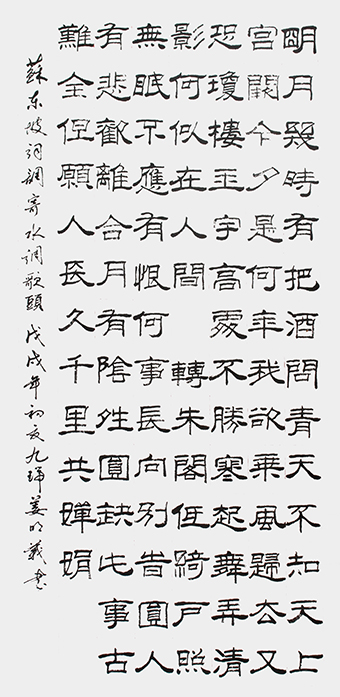 明月幾時有把酒問青天不知天上
宮闕今夕是何年我欲乘風歸去又
恐瓊樓玉宇高處不勝寒起舞弄清
影何似在人間 轉朱閣低綺戶照
無眠不應有恨何事長向別旹圓人
有悲歡離合月有陰晴圓缺此事古
難全但願人長久千里共嬋娟
蘇東坡詞調寄水調歌頭 戊戌年初夏九 姜明義書